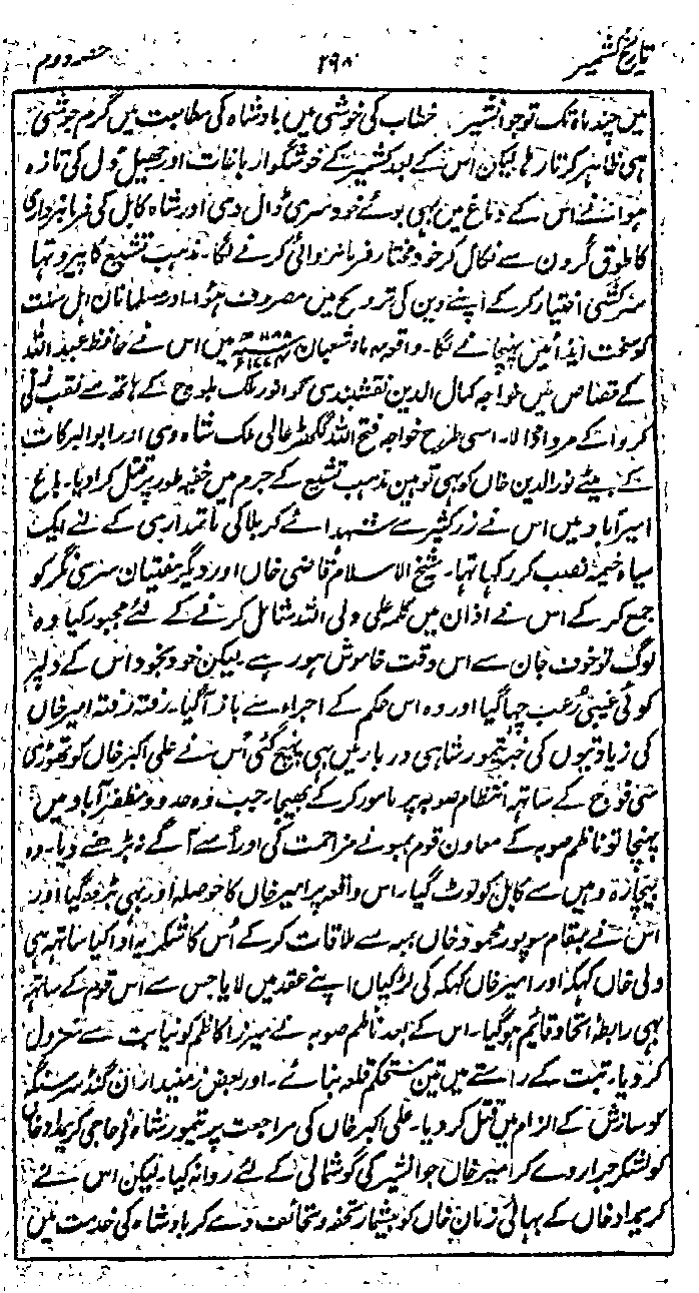 تاریخ کشمیر ۲۹۸ حصہ دوم
میں چند ماہ تک تو جوانشیر خطاب کی خوشی میں بادشاہ کی مطابعت میں گرم جوشی
ہی ظاہر کرتا رہا لیکن اس کے بعد کشمیر کے خوشگوار باغات اور جھیل ڈل کی تازہ
ہوا نے اس کے دماغ میں بہی بوئے خود سری ڈال دی اور شاہ کابل کی فرمانبرداری
کا طوق گردن سے نکال کر خود مختار فرمانروائی کرنے لگا۔ مذہب تشیع کا پیرو تہا
سرکشی اختیار کر کے اپنے دین کی ترویج میں مصروف ہوا۔ اور مسلمانان اہل سنت
کو سخت ایذائیں پہنچانے لگا۔ واقعہ ماہ شعبان میں اس نے حافظ عبد اللہ
کے قصاص میں خواجہ کمال الدین نقشبندی کو انور ملک بلوچ کے ہاتھ سے نقب زنی
کروا کے مروا ڈالا۔ اسی طرح خواجہ فتح اللہ گکھڑ عالی ملک شاہ دی اور ابوالبرکات
کے بیٹے نور الدین خاں کو بہی توہین مذہب تشیع کے جرم میں خفیہ طور پر قتل کرا دیا۔ باغ
امیر آباد میں اس نے زر کثیر سے شہدائے کربلا کی ماتمداری کے لئے ایک
سیاہ خیمہ نصب کر رکہا تہا۔ شیخ الاسلام قاضی خاں اور دیگر مفتیان سری نگر کو
جمع کر کے اس نے اذان میں کلمہ علی ولی اللہ شامل کرنے کے لئے مجبور کیا وہ
لوگ تو خوف جان سے اس وقت خاموش ہو رہے۔ لیکن خود بخود اس کے دلپر
کوئی غیبی رعب چہا گیا اور وہ اس حکم کے اجراء سے باز آ گیا۔ رفتہ رفتہ امیر خاں
کی زیادتیوں کی خبر تیمور شاہی دربار میں بہی پہنچ گئی اُس نے علی اکبر خاں کو تھوڑی
سی فوج کے ساتہہ انتظام صوبہ پر مامور کر کے بھیجا۔ جب وہ حدود مظفر آباد میں
پہنچا تو ناظم صوبہ کے معاون قوم بمبو نے مزاحمت کی اور اُسے آگے نہ بڑھنے دیا۔ وہ
بیچارہ وہیں سے کابل کو لوٹ گیا۔ اس واقعہ پر امیر خاں کا حوصلہ اور بہی بڑھ گیا اور
اس نے بمقام سوپور محمود خاں بمبہ سے ملاقات کر کے اُس کا شکریہ ادا کیا ساتہہ ہی
ولی خاں کہکہ اور امیر خاں کہکہ کی لڑکیاں اپنے عقد میں لایا جس سے اس قوم کے ساتہہ
بہی رابطہ اتحاد قائیم ہو گیا۔ اس کے بعد ناظم صوبہ نے میرزا کاظم کو نیابت سے معزول
کر دیا۔ تبت کے راستے میں تین مستحکم قلعہ بنائے۔ اور بعض زمینداران گنڈ سرسنگہ
کو سازش کے الزام میں قتل کر دیا۔ علی اکبر خاں کی مراجعت پر تیمور شاہ نے حاجی کریمداد خاں
کو لشکر جرار دے کر امیر خاں جوانشیر کی گوشمالی کے لئے روانہ کیا۔ لیکن اس نے
کریمداد خاں کے بہائی زمان خاں کو بیشمار تحفہ و تحائف دے کر بادشاہ کی خدمت میں